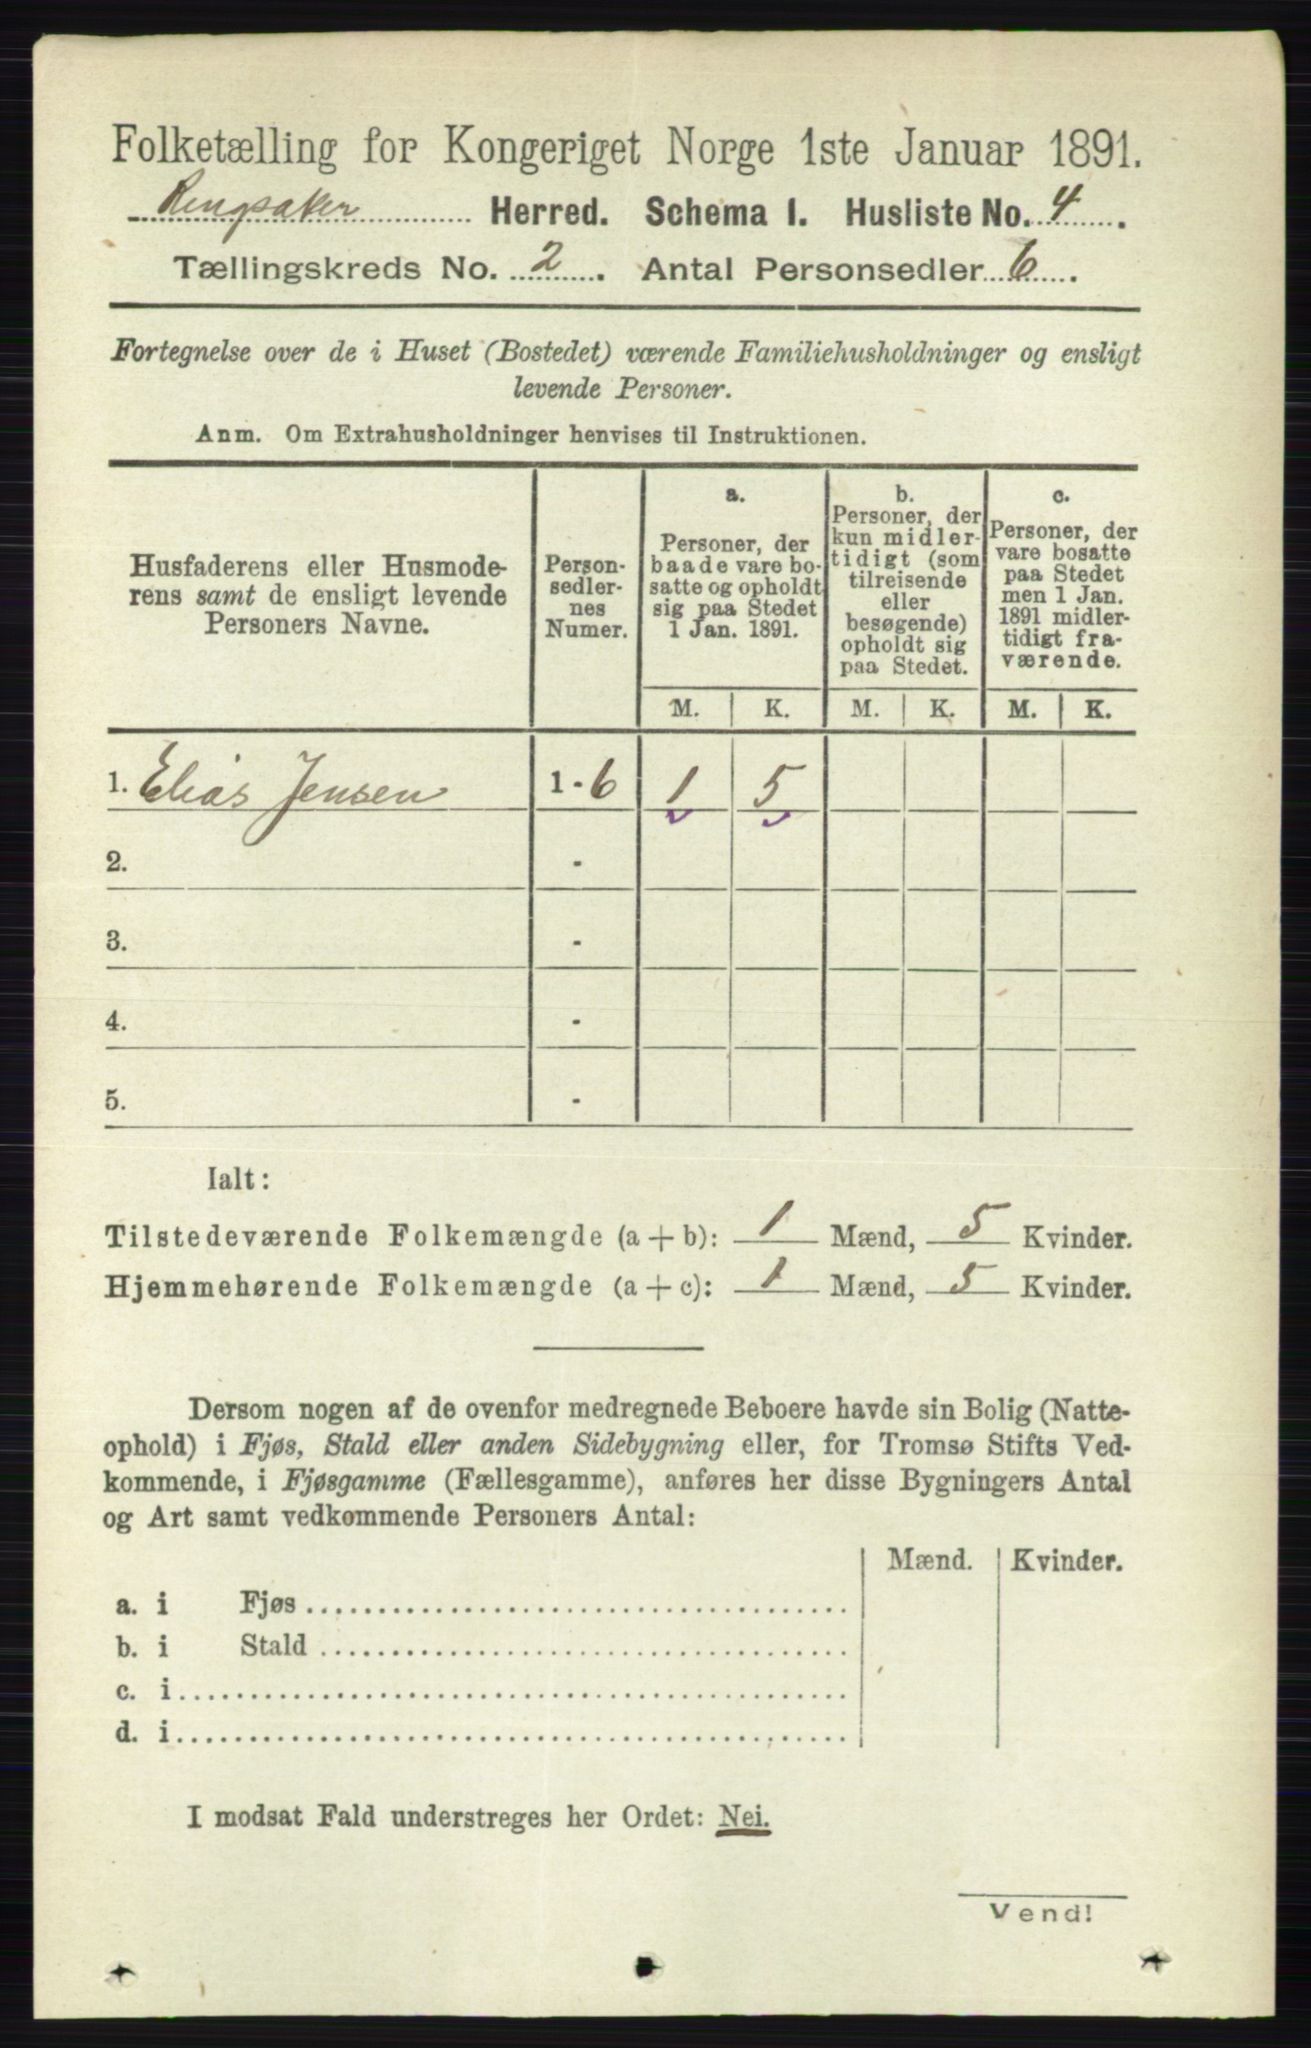 Folketælling for Kongeriget Norge 1ste Januar 1891.
Ringsaker Herred. Schema I. Husliste No. 4.
Tællingskreds No. 2. Antal Personsedler 6.
Fortegnelse over de i Huset (Bostedet) værende Familiehusholdninger og ensligt
levende Personer.
Anm. Om Extrahusholdninger henvises til Instruktionen.
Husfaderens eller Husmode-
rens samt de ensligt levende
Personers Navne.
Person-
sedler-
nes
Numer.
a.
Personer, der
baade vare bo-
satte og opholdt
sig paa Stedet
1 Jan. 1891.
b.
Personer, der
kun midler-
tidigt (som
tilreisende
eller
besøgende)
opholdt sig
paa Stedet.
c.
Personer, der
vare bosatte
paa Stedet
men 1 Jan.
1891 midler-
tidigt fra-
værende.
M. K. M. K. M. K.
1. Elias Jensen 1 - 6 1 5
2. -
3. -
4. -
5. -
Ialt:
Tilstedeværende Folkemængde (a + b): 1 Mænd, 5 Kvinder.
Hjemmehørende Folkemængde (a + c): 1 Mænd, 5 Kvinder.
Dersom nogen af de ovenfor medregnede Beboere havde sin Bolig (Natte-
ophold) i Fjøs, Stald eller anden Sidebygning eller, for Tromsø Stifts Ved-
kommende, i Fjøsgamme (Fællesgamme), anføres her disse Bygningers Antal
og Art samt vedkommende Personers Antal:
Mænd. Kvinder.
a. i Fjøs
b. i Stald
c. i
d. i
I modsat Fald understreges her Ordet: Nei.
Vend!